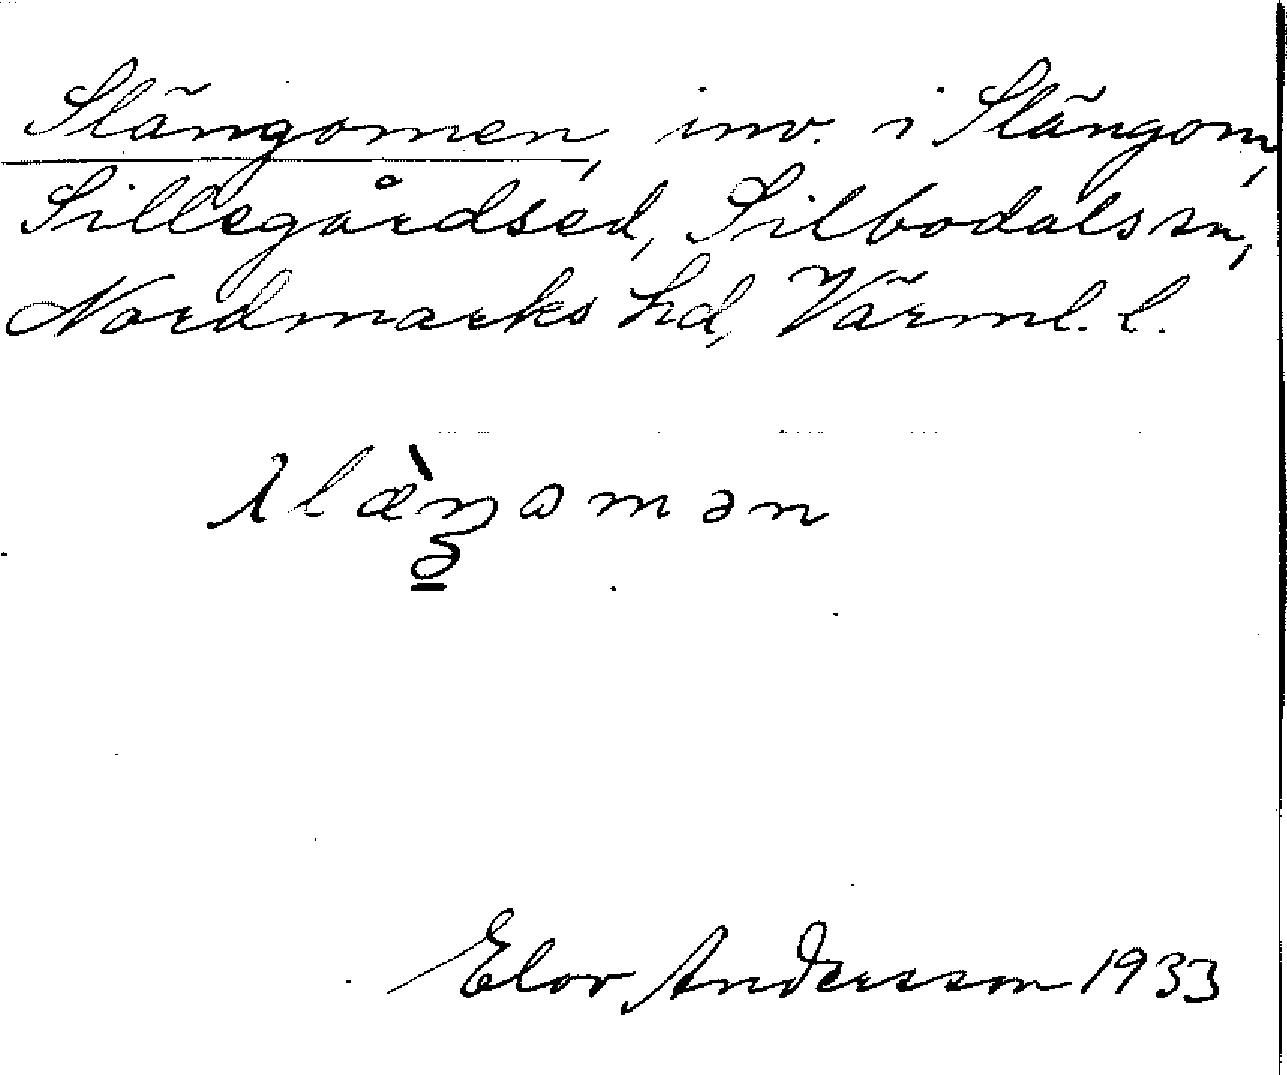 Slängomen, inv. i Slängom,
Sillegårdsed, Silbodals sn,
Nordmarks hd, Värml. l.
Elov Andersson 1933